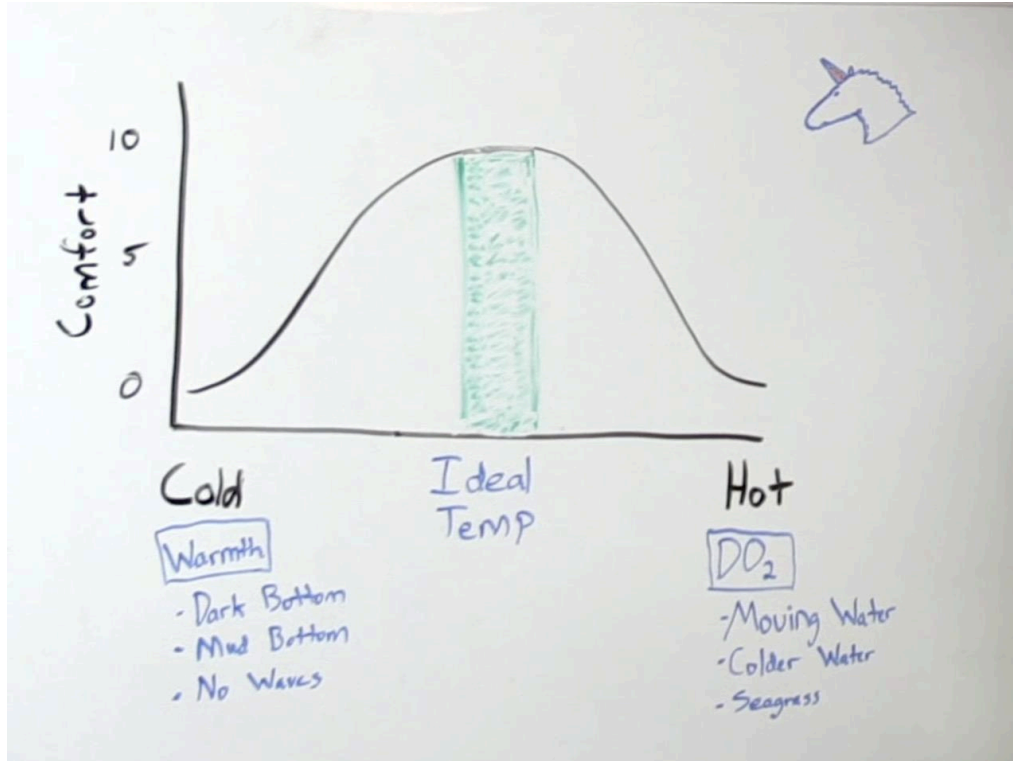 10
Comfort
5
0
Cold
Ideal
Temp
Hot
Warmth
- Dark Bottom
- Mud Bottom
- No Waves
DO₂
- Moving Water
- Colder Water
- Seagrass